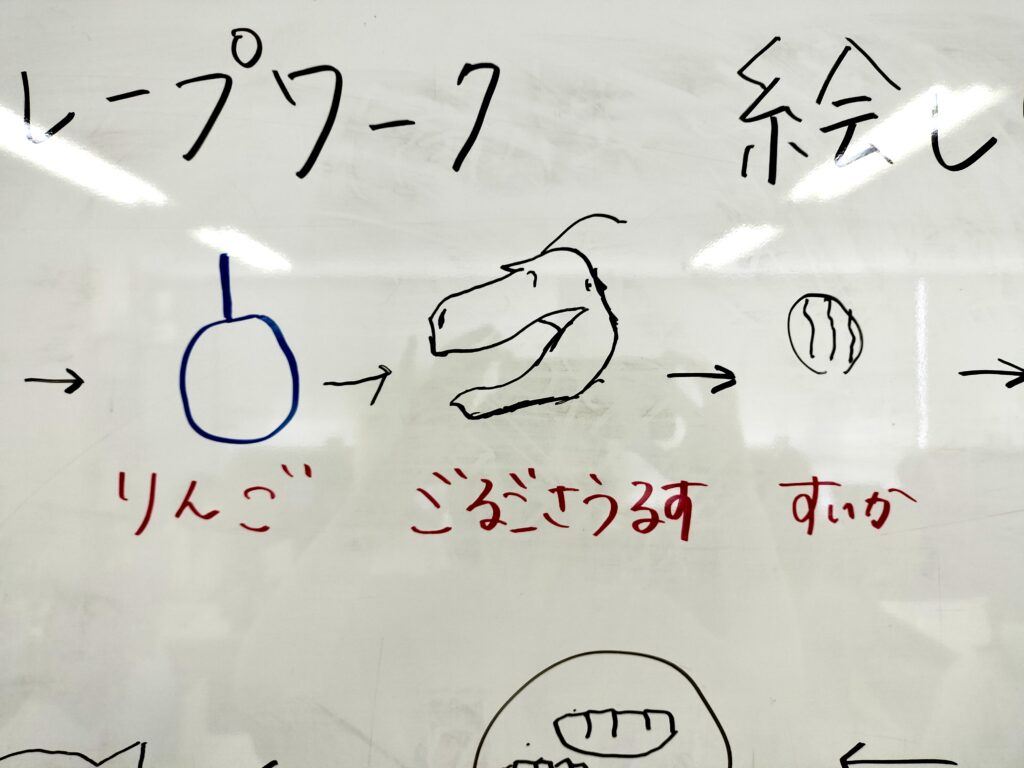 ループワーク 絵し
りんご ごるごさうるす すいか